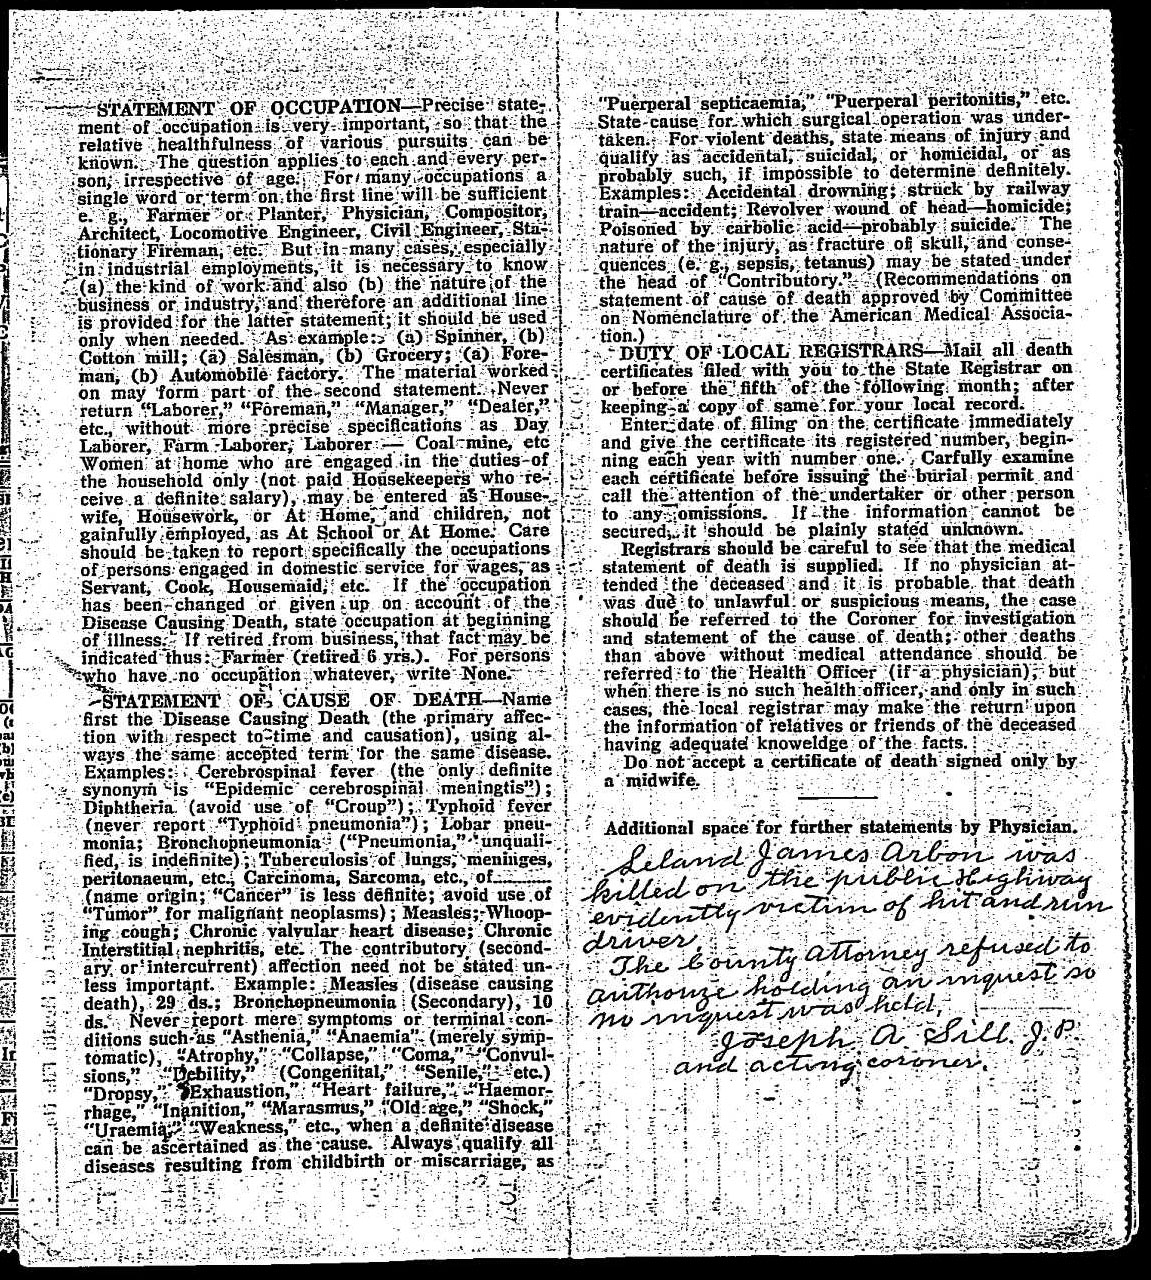 STATEMENT OF OCCUPATION—Precise state-
ment of occupation is very important, so that the
relative healthfulness of various pursuits can be
known. The question applies to each and every per-
son, irrespective of age. For many occupations a
single word or term on the first line will be sufficient
e. g., Farmer or Planter, Physician, Compositor,
Architect, Locomotive Engineer, Civil Engineer, Sta-
tionary Fireman, etc. But in many cases, especially
in industrial employments, it is necessary to know
(a) the kind of work and also (b) the nature of the
business or industry, and therefore an additional line
is provided for the latter statement; it should be used
only when needed. As example: (a) Spinner, (b)
Cotton mill; (a) Salesman, (b) Grocery; (a) Fore-
man, (b) Automobile factory. The material worked
on may form part of the second statement. Never
return "Laborer," "Foreman," "Manager," "Dealer,"
etc., without more precise specifications as Day
Laborer, Farm Laborer, Laborer — Coal mine, etc
Women at home who are engaged in the duties of
the household only (not paid Housekeepers who re-
ceive a definite salary), may be entered as House-
wife, Housework, or At Home, and children, not
gainfully employed, as At School or At Home. Care
should be taken to report specifically the occupations
of persons engaged in domestic service for wages, as
Servant, Cook, Housemaid, etc. If the occupation
has been changed or given up on account of the
Disease Causing Death, state occupation at beginning
of illness. If retired from business, that fact may be
indicated thus: Farmer (retired 6 yrs.). For persons
who have no occupation whatever, write None.
STATEMENT OF CAUSE OF DEATH—Name
first the Disease Causing Death (the primary affec-
tion with respect to time and causation), using al-
ways the same accepted term for the same disease.
Examples: Cerebrospinal fever (the only definite
synonym is "Epidemic cerebrospinal meningtis");
Diphtheria (avoid use of "Croup"); Typhoid fever
(never report "Typhoid pneumonia"); Lobar pneu-
monia; Bronchopneumonia ("Pneumonia," unquali-
fied, is indefinite); Tuberculosis of lungs, meninges,
peritonaeum, etc., Carcinoma, Sarcoma, etc., of
(name origin; "Cancer" is less definite; avoid use of
"Tumor" for malignant neoplasms); Measles; Whoop-
ing cough; Chronic valvular heart disease; Chronic
Interstitial nephritis, etc. The contributory (second-
ary or intercurrent) affection need not be stated un-
less important. Example: Measles (disease causing
death), 29 ds.; Bronchopneumonia (Secondary), 10
ds. Never report mere symptoms or terminal con-
ditions such as "Asthenia," "Anaemia" (merely symp-
tomatic), "Atrophy," "Collapse," "Coma," "Convul-
sions," "Debility," (Congenital," "Senile," etc.)
"Dropsy," "Exhaustion," "Heart failure," "Haemor-
rhage," "Inanition," "Marasmus," "Old age," "Shock,"
"Uraemia," "Weakness," etc., when a definite disease
can be ascertained as the cause. Always qualify all
diseases resulting from childbirth or miscarriage, as
"Puerperal septicaemia," "Puerperal peritonitis," etc.
State cause for which surgical operation was under-
taken. For violent deaths, state means of injury and
qualify as accidental, suicidal, or homicidal, or as
probably such, if impossible to determine definitely.
Examples: Accidental drowning; struck by railway
train—accident; Revolver wound of head—homicide;
Poisoned by carbolic acid—probably suicide. The
nature of the injury, as fracture of skull, and conse-
quences (e. g., sepsis, tetanus) may be stated under
the head of "Contributory." (Recommendations on
statement of cause of death approved by Committee
on Nomenclature of the American Medical Associa-
tion.)
DUTY OF LOCAL REGISTRARS—Mail all death
certificates filed with you to the State Registrar on
or before the fifth of the following month; after
keeping a copy of same for your local record.
Enter date of filing on the certificate immediately
and give the certificate its registered number, begin-
ning each year with number one. Carfully examine
each certificate before issuing the burial permit and
call the attention of the undertaker or other person
to any omissions. If the information cannot be
secured, it should be plainly stated unknown.
Registrars should be careful to see that the medical
statement of death is supplied. If no physician at-
tended the deceased and it is probable that death
was due to unlawful or suspicious means, the case
should be referred to the Coroner for investigation
and statement of the cause of death; other deaths
than above without medical attendance should be
referred to the Health Officer (if a physician), but
when there is no such health officer, and only in such
cases, the local registrar may make the return upon
the information of relatives or friends of the deceased
having adequate knoweldge of the facts.
Do not accept a certificate of death signed only by
a midwife.
Additional space for further statements by Physician.
Leland James Arbon was
killed on the public Highway
evidently victim of hit and run
driver.
The County Attorney refused to
authorize holding an inquest so
no inquest was held.
Joseph A. Sill. J.P.
and acting coroner.